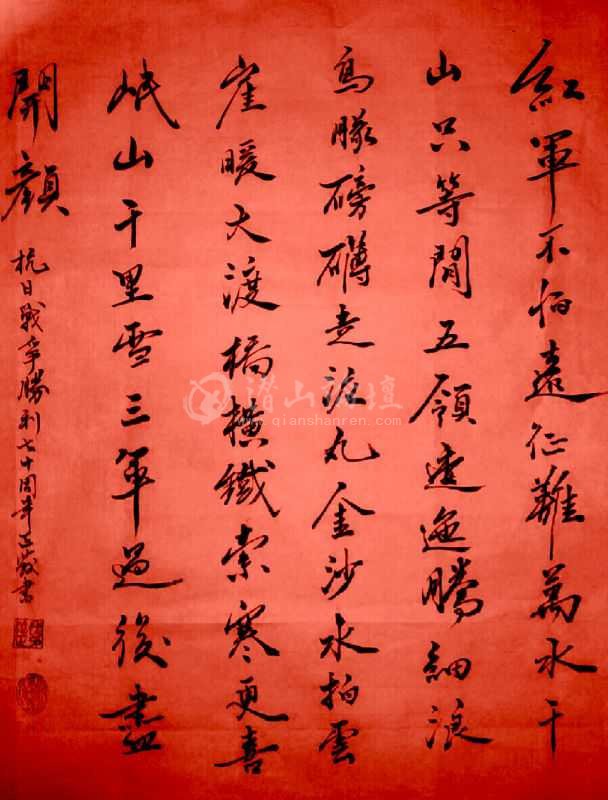 紅軍不怕遠征難萬水千
山只等閒五領逶迤騰細浪
烏朦磅礡走泥丸金沙水拍雲
崖暖大渡橋橫鐵索寒更喜
岷山千里雪三軍過後盡
開顏
抗日戰爭勝利七十周年書
潜山論壇
www.qianshanren.com